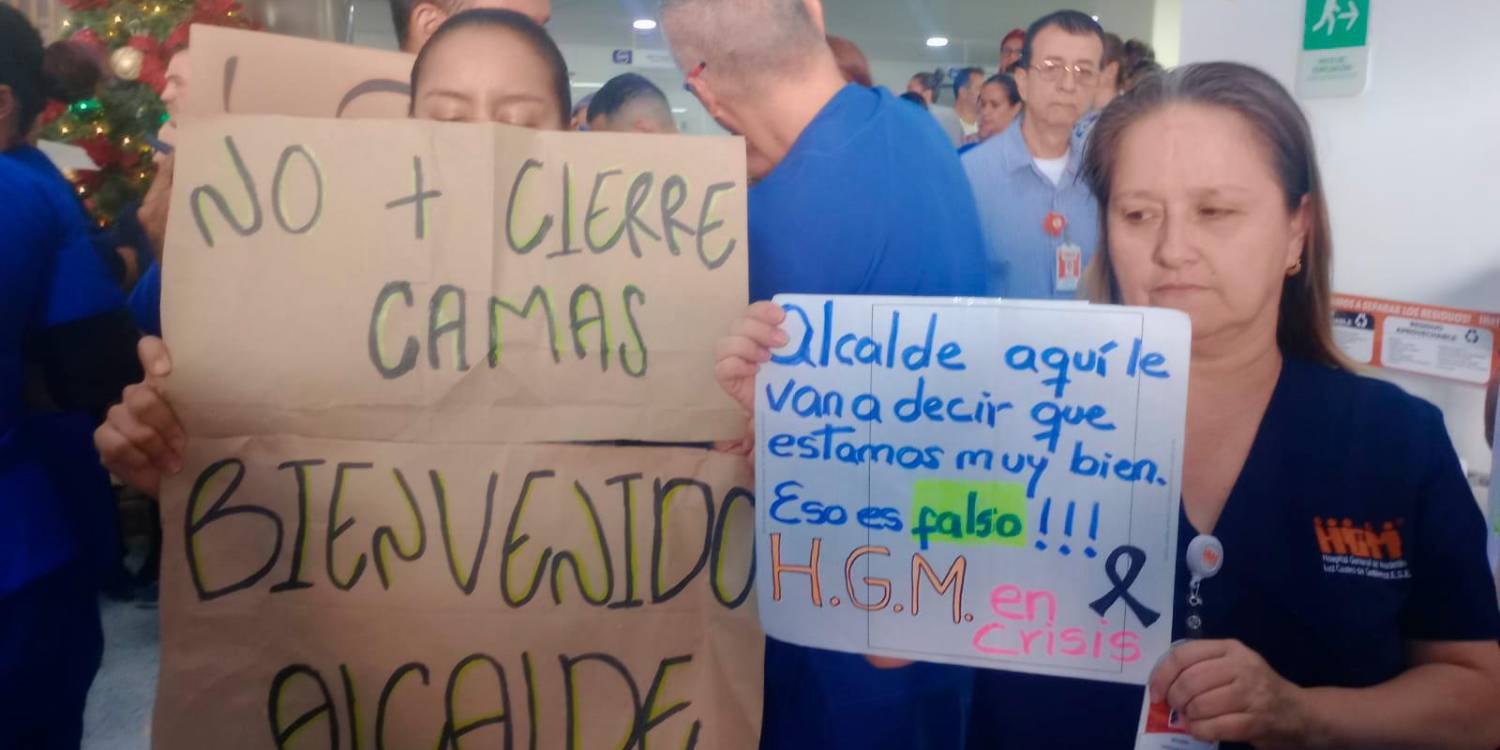 NO + CIERRE
CAMAS
BIENVENIDO
ALCALDE
Alcalde aquí le
van a decir que
estamos muy bien.
Eso es falso!!!
H.G.M. en
crisis
HGM
Hospital General de Medellín
Luz Castro de Gutiérrez E.S.E.
A SEPARAR LOS RESIDUOS!
RESIDUO
APROVECHABLE